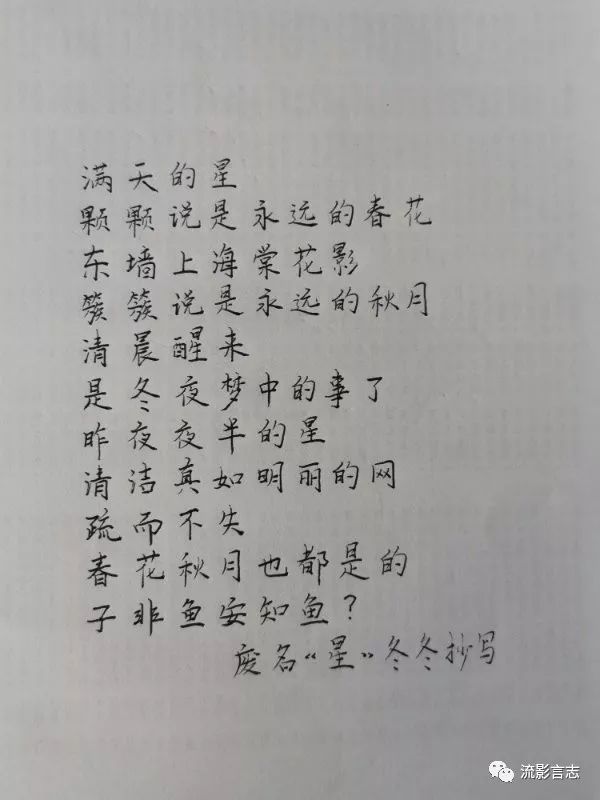 满天的星
颗颗说是永远的春花
东墙上海棠花影
簇簇说是永远的秋月
清晨醒来
是冬夜梦中的事了
昨夜夜半的星
清洁真如明丽的网
疏而不失
春花秋月也都是的
子非鱼安知鱼？
废名“星”冬冬抄写
流影言志